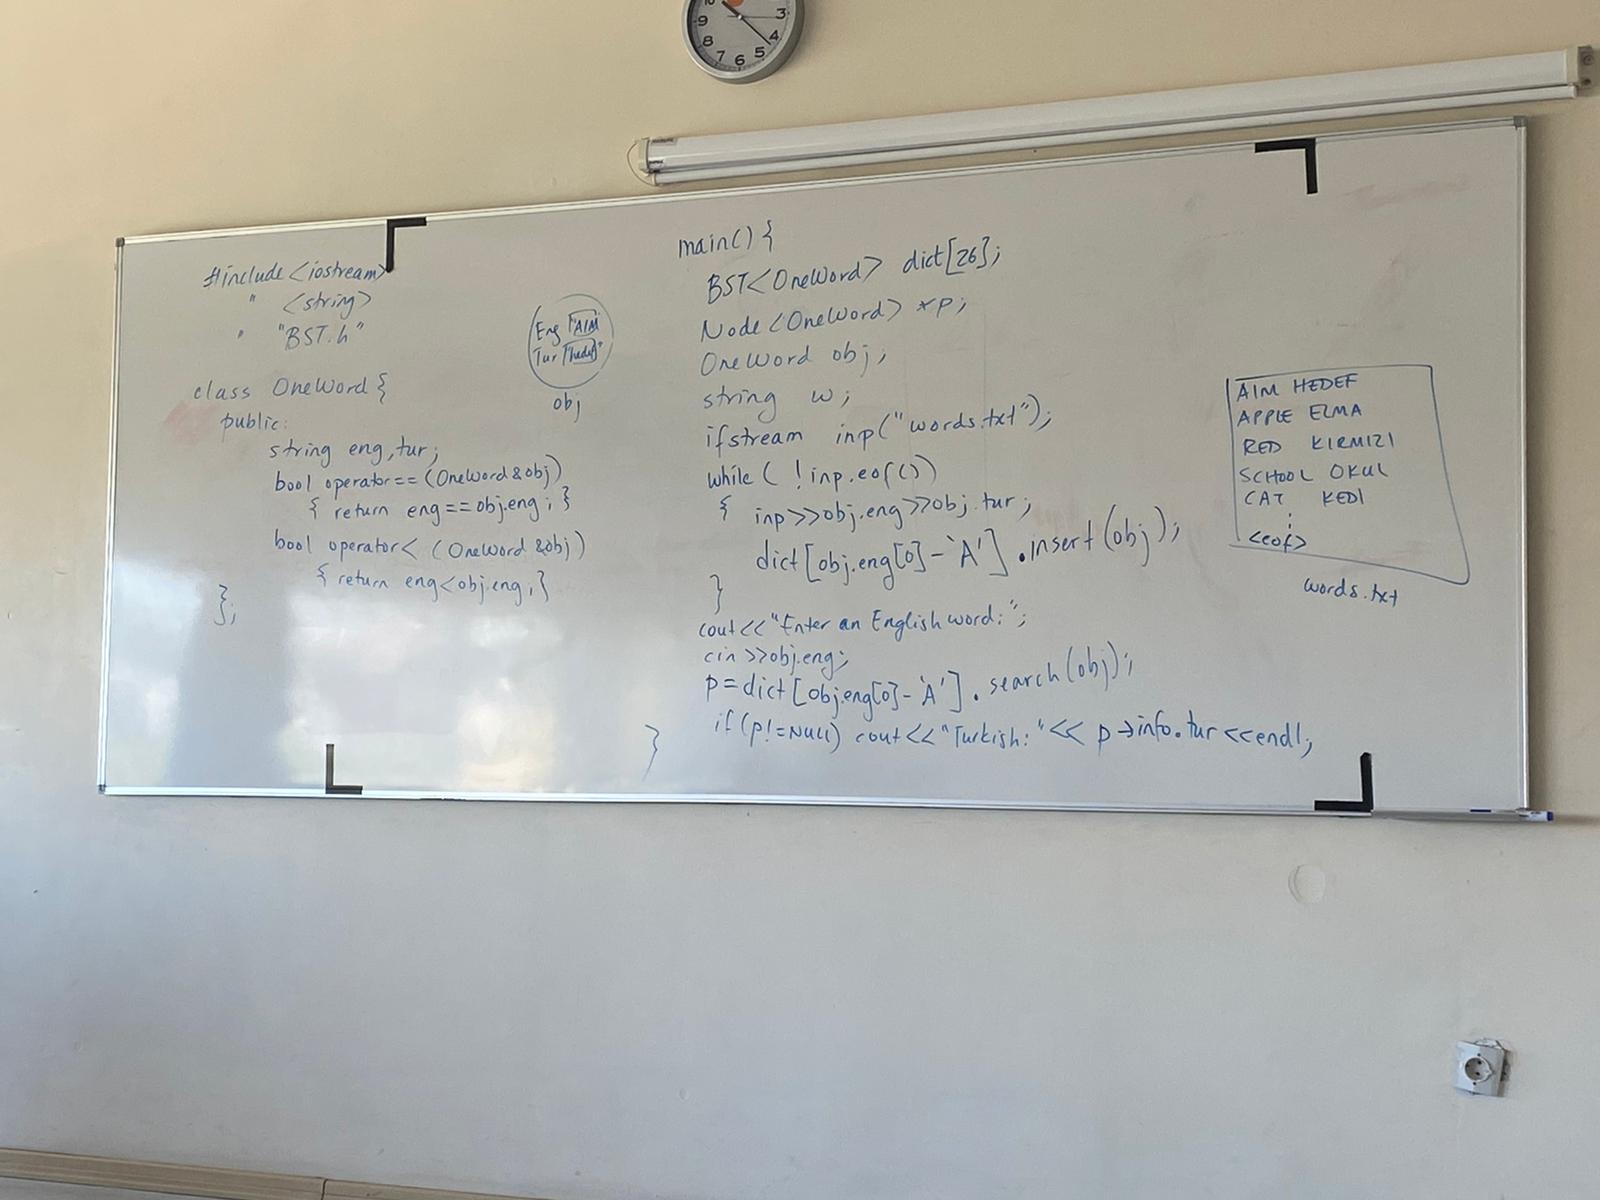 10
9
8
7
6
5
4
3
#include <iostream>
" <string>
" "BST.h"
class OneWord {
public:
string eng, tur;
bool operator== (OneWord &obj)
{ return eng==obj.eng; }
bool operator< (OneWord &obj)
{ return eng<obj.eng; }
};
Eng "AIM"
Tur "hedef"
obj
main() {
BST<OneWord> dict[26];
Node<OneWord> *p;
OneWord obj;
string w;
ifstream inp("words.txt");
while ( !inp.eof())
{ inp>>obj.eng>>obj.tur;
dict[obj.eng[0]-'A'].insert(obj);
}
cout<<"Enter an English word:";
cin>>obj.eng;
p=dict[obj.eng[0]-'A'].search(obj);
if (p!=NULL) cout<<"Turkish:"<< p->info.tur<<endl;
}
AIM HEDEF
APPLE ELMA
RED KIRMIZI
SCHOOL OKUL
CAT KEDI
<eof>
words.txt